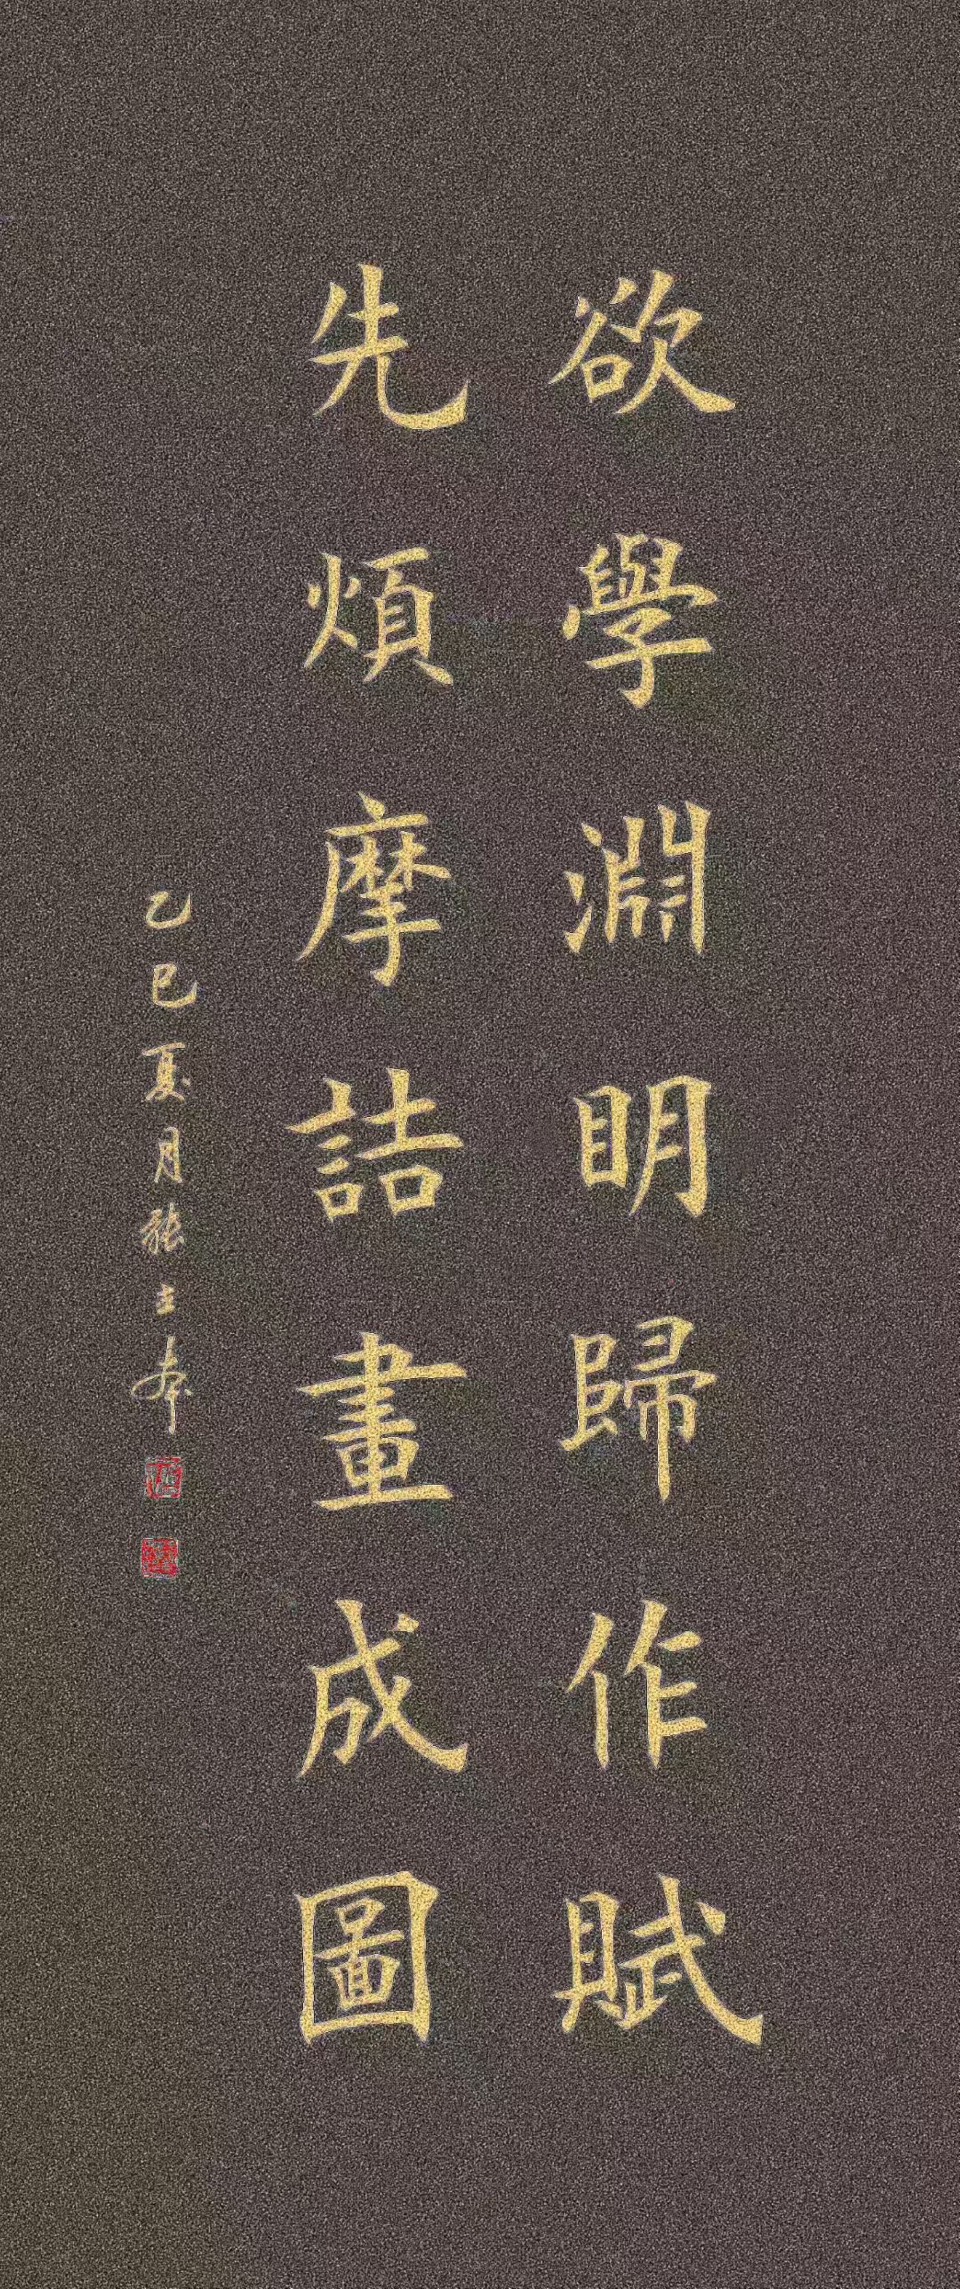 欲學淵明歸作賦
先煩摩詰畫成圖
乙巳夏月張立奉